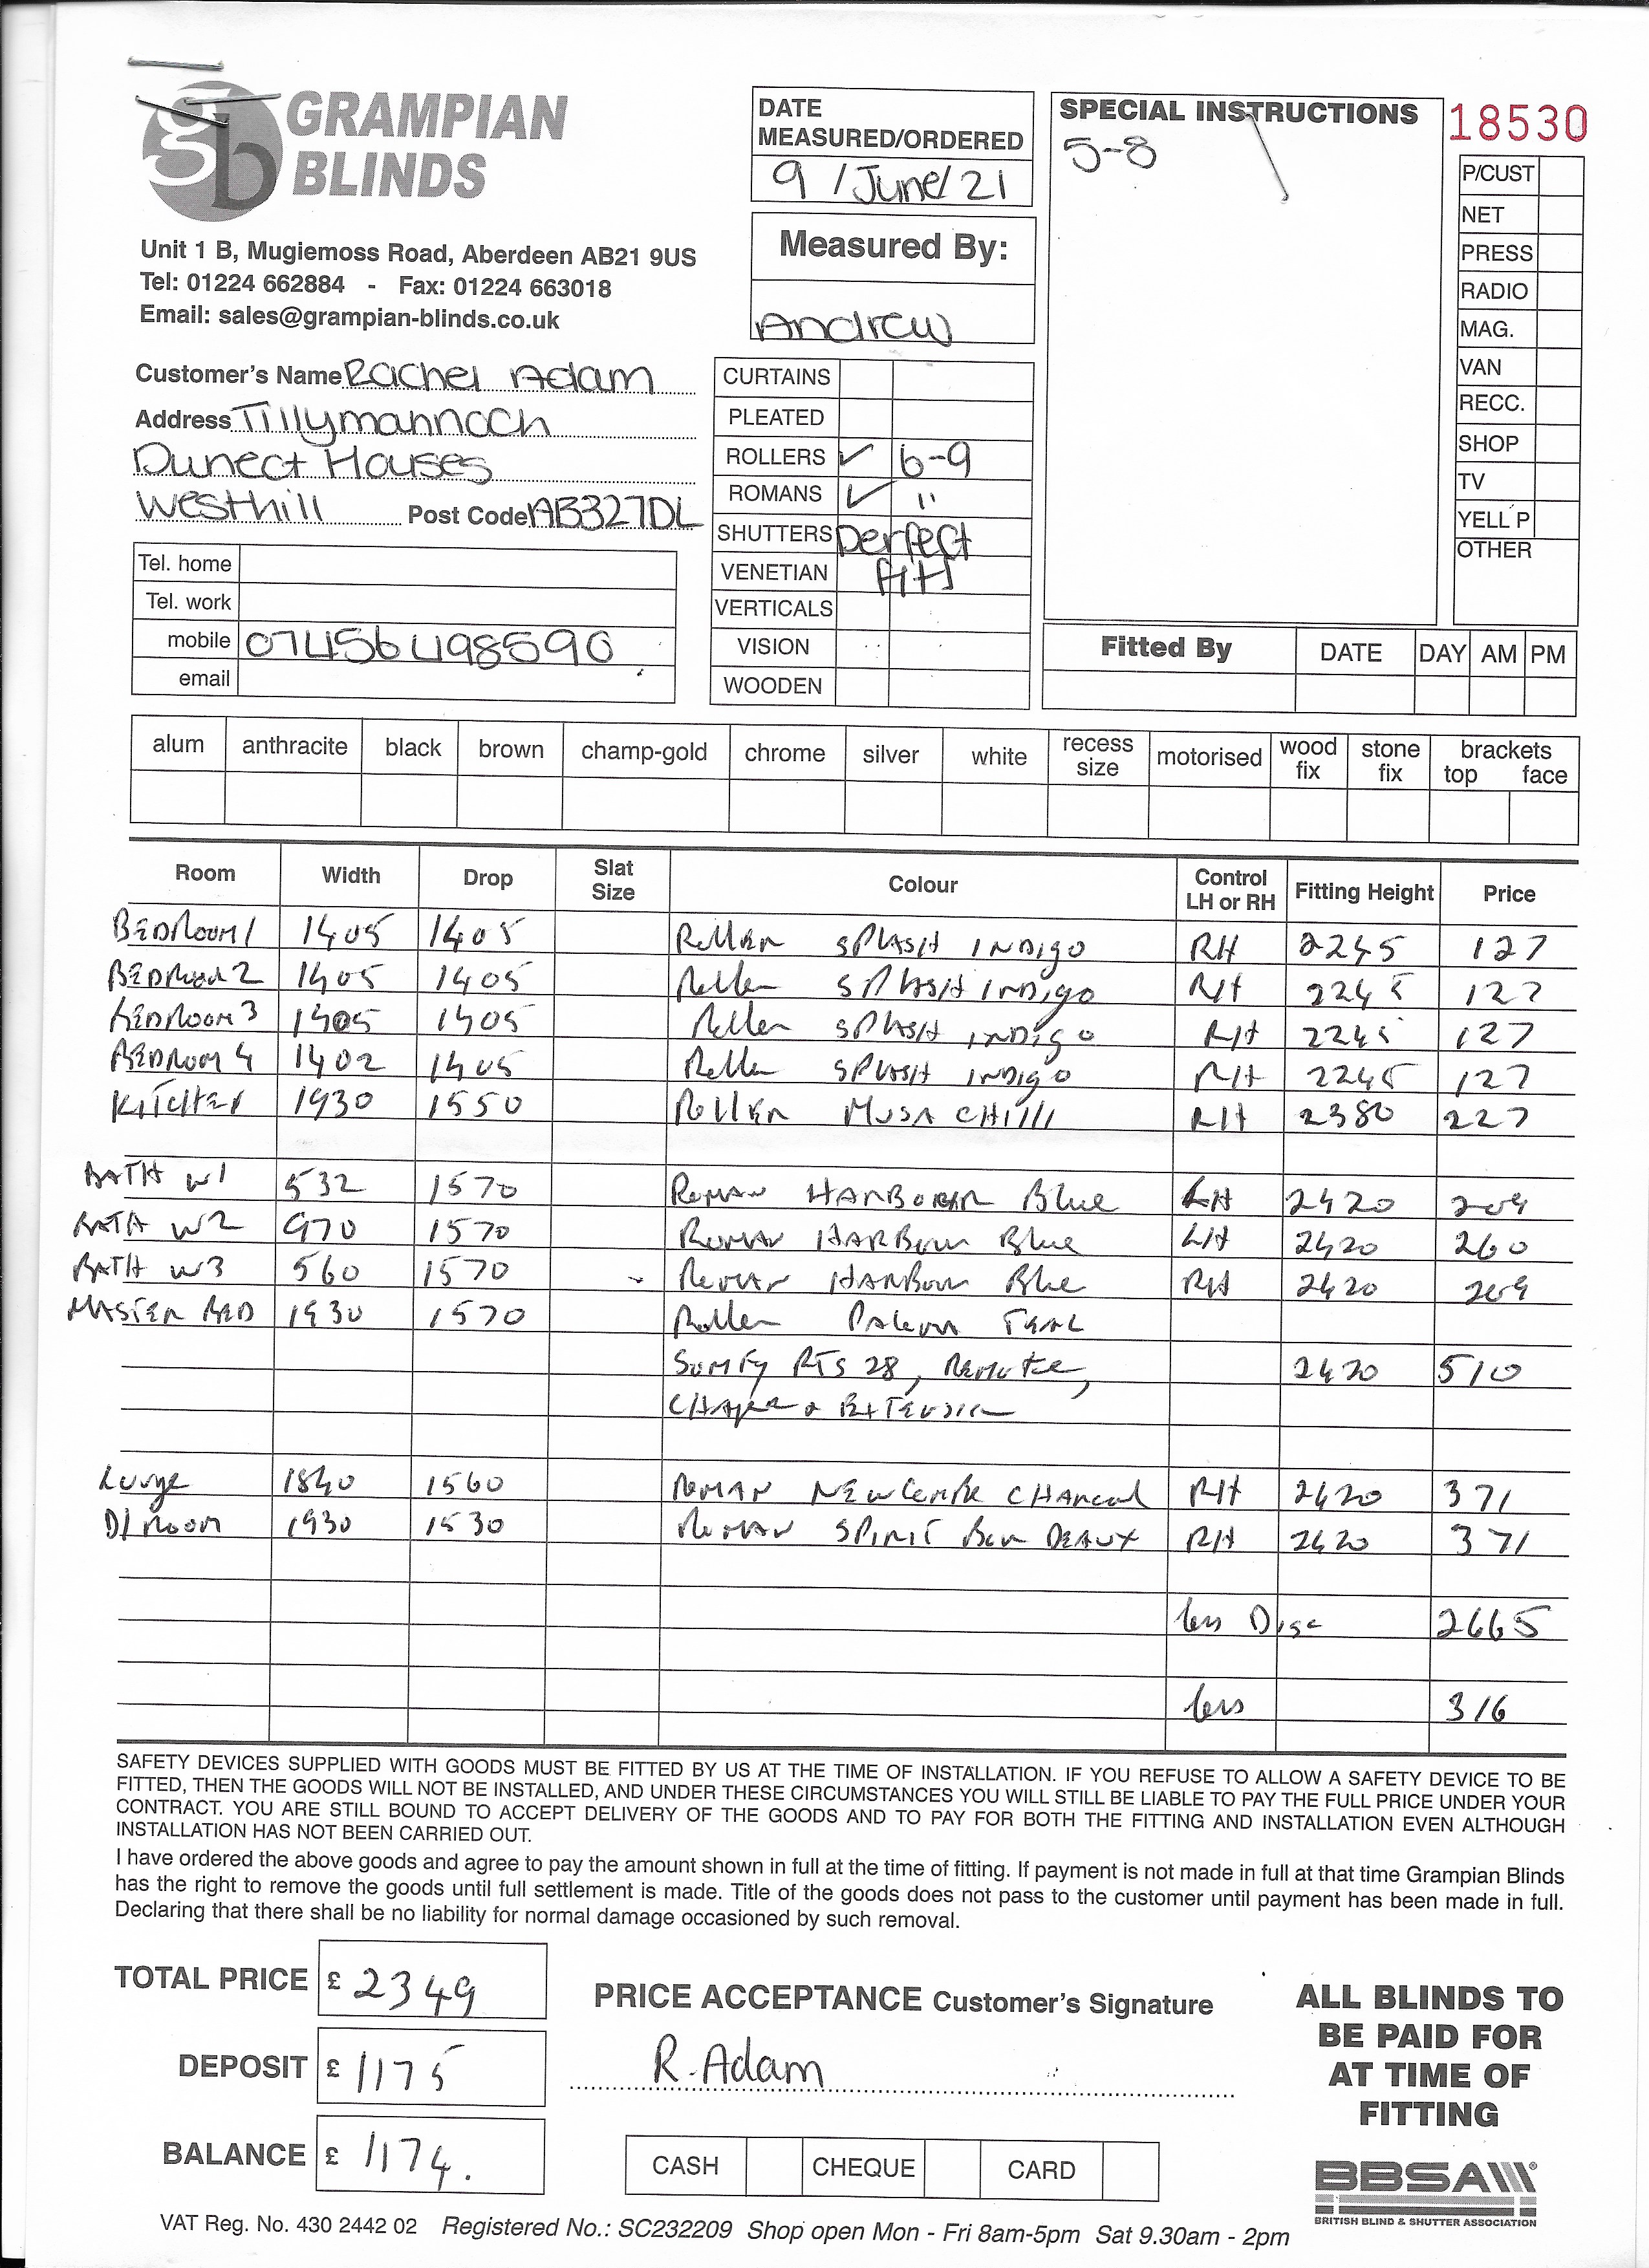 gb GRAMPIAN BLINDS
Unit 1 B, Mugiemoss Road, Aberdeen AB21 9US
Tel: 01224 662884 - Fax: 01224 663018
Email: sales@grampian-blinds.co.uk
DATE MEASURED/ORDERED
9 / June / 21
Measured By:
Andrew
SPECIAL INSTRUCTIONS
5-8
18530
P/CUST
NET
PRESS
RADIO
MAG.
VAN
RECC.
SHOP
TV
YELL P
OTHER
Customer's Name Rachel Adam
Address Tillymannoch
Dunect Houses
Westhill Post Code AB327DL
Tel. home
Tel. work
mobile 07456498590
email
CURTAINS
PLEATED
ROLLERS ✓ 6-9
ROMANS ✓ "
SHUTTERS perfect
VENETIAN fit
VERTICALS
VISION
WOODEN
Fitted By DATE DAY AM PM
alum anthracite black brown champ-gold chrome silver white recess size motorised wood fix stone fix brackets top face
Room Width Drop Slat Size Colour Control LH or RH Fitting Height Price
BEDROOM 1 1405 1405 Roller SPLASH INDIGO RH 2245 127
BEDROOM 2 1405 1405 Roller SPLASH INDIGO RH 2245 127
BEDROOM 3 1405 1405 Roller SPLASH INDIGO RH 2245 127
BEDROOM 4 1402 1405 Roller SPLASH INDIGO RH 2245 127
KITCHEN 1930 1550 Roller MUSA CHILLI RH 2380 227
BATH W1 532 1570 ROMAN HARBOUR Blue LH 2420 209
BATH W2 970 1570 ROMAN HARBOUR Blue LH 2420 260
BATH W3 560 1570 ROMAN HARBOUR Blue RH 2420 209
MASTER BED 1930 1570 Roller TEAL
SOMFY RTS 28, Remote, 2420 510
CHARGER & EXTENSION
Lounge 1840 1560 ROMAN CHARCOAL RH 2420 371
D/ROOM 1930 1530 ROMAN SPIRIT BORDEAUX RH 2420 371
less Disc 2665
less 316
SAFETY DEVICES SUPPLIED WITH GOODS MUST BE FITTED BY US AT THE TIME OF INSTALLATION. IF YOU REFUSE TO ALLOW A SAFETY DEVICE TO BE
FITTED, THEN THE GOODS WILL NOT BE INSTALLED, AND UNDER THESE CIRCUMSTANCES YOU WILL STILL BE LIABLE TO PAY THE FULL PRICE UNDER YOUR
CONTRACT. YOU ARE STILL BOUND TO ACCEPT DELIVERY OF THE GOODS AND TO PAY FOR BOTH THE FITTING AND INSTALLATION EVEN ALTHOUGH
INSTALLATION HAS NOT BEEN CARRIED OUT.
I have ordered the above goods and agree to pay the amount shown in full at the time of fitting. If payment is not made in full at that time Grampian Blinds
has the right to remove the goods until full settlement is made. Title of the goods does not pass to the customer until payment has been made in full.
Declaring that there shall be no liability for normal damage occasioned by such removal.
TOTAL PRICE £ 2349
DEPOSIT £ 1175
BALANCE £ 1174.
PRICE ACCEPTANCE Customer's Signature
R. Adam
CASH CHEQUE CARD
ALL BLINDS TO
BE PAID FOR
AT TIME OF
FITTING
BBSA
BRITISH BLIND & SHUTTER ASSOCIATION
VAT Reg. No. 430 2442 02 Registered No.: SC232209 Shop open Mon - Fri 8am-5pm Sat 9.30am - 2pm